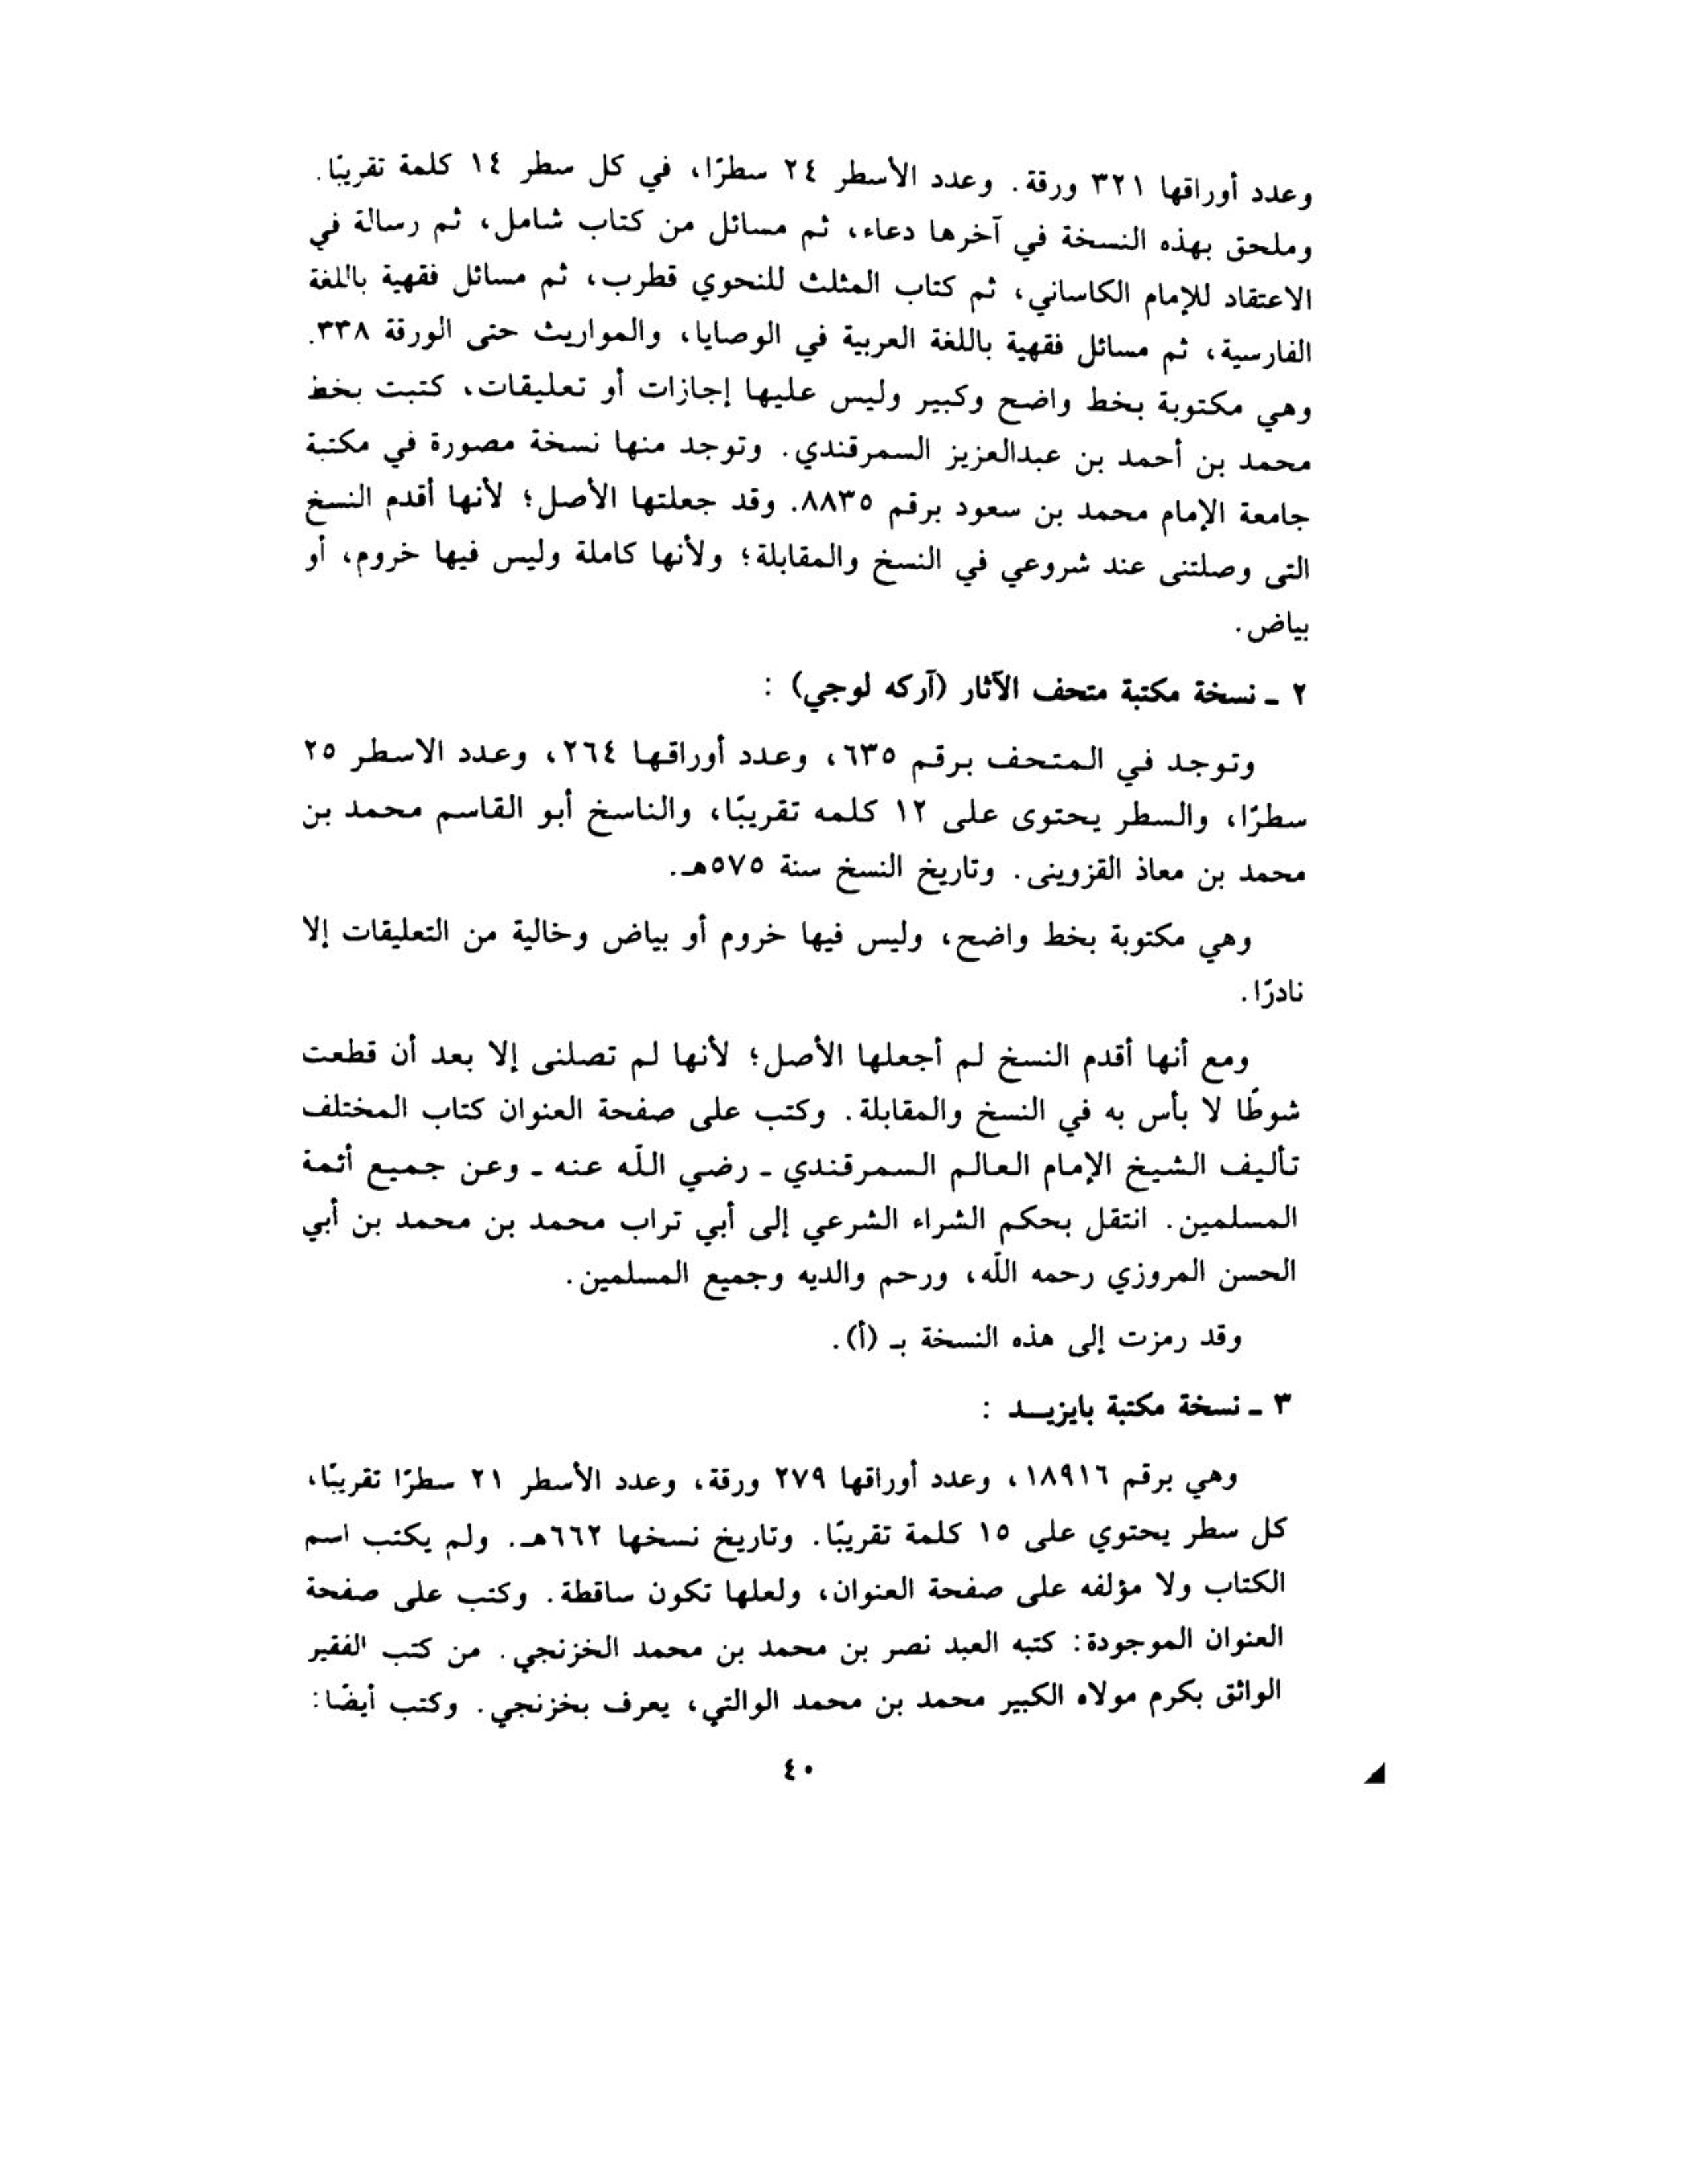 وعدد أوراقها ٣٢١ ورقة. وعدد الأسطر ٢٤ سطرًا، في كل سطر ١٤ كلمة تقريبًا.
وملحق بهذه النسخة في آخرها دعاء، ثم مسائل من كتاب شامل، ثم رسالة في
الاعتقاد للإمام الكاساني، ثم كتاب المثلث للنحوي قطرب، ثم مسائل فقهية باللغة
الفارسية، ثم مسائل فقهية باللغة العربية في الوصايا، والمواريث حتى الورقة ٣٣٨.
وهي مكتوبة بخط واضح وكبير وليس عليها إجازات أو تعليقات، كتبت بخط
محمد بن أحمد بن عبدالعزيز السمرقندي. وتوجد منها نسخة مصورة في مكتبة
جامعة الإمام محمد بن سعود برقم ٨٨٣٥. وقد جعلتها الأصل؛ لأنها أقدم النسخ
التى وصلتنى عند شروعي في النسخ والمقابلة؛ ولأنها كاملة وليس فيها خروم، أو
بياض.
٢ ـ نسخة مكتبة متحف الآثار (آركه لوجي) :
وتوجد في المتحف برقم ٦٣٥، وعدد أوراقها ٢٦٤، وعدد الاسطر ٢٥
سطرًا، والسطر يحتوى على ١٢ كلمه تقريبًا، والناسخ أبو القاسم محمد بن
محمد بن معاذ القزوينى. وتاريخ النسخ سنة ٥٧٥هـ.
وهي مكتوبة بخط واضح، وليس فيها خروم أو بياض وخالية من التعليقات إلا
نادرًا.
ومع أنها أقدم النسخ لم أجعلها الأصل؛ لأنها لم تصلنى إلا بعد أن قطعت
شوطًا لا بأس به في النسخ والمقابلة. وكتب على صفحة العنوان كتاب المختلف
تأليف الشيخ الإمام العالم السمرقندي ـ رضي اللّه عنه ـ وعن جميع أئمة
المسلمين. انتقل بحكم الشراء الشرعي إلى أبي تراب محمد بن محمد بن أبي
الحسن المروزي رحمه اللّه، ورحم والديه وجميع المسلمين.
وقد رمزت إلى هذه النسخة بـ (أ).
٣ ـ نسخة مكتبة بايزيــد :
وهي برقم ١٨٩١٦، وعدد أوراقها ٢٧٩ ورقة، وعدد الأسطر ٢١ سطرًا تقريبًا،
كل سطر يحتوي على ١٥ كلمة تقريبًا. وتاريخ نسخها ٦٦٢هـ. ولم يكتب اسم
الكتاب ولا مؤلفه على صفحة العنوان، ولعلها تكون ساقطة. وكتب على صفحة
العنوان الموجودة: كتبه العبد نصر بن محمد بن محمد الخزنجي. من كتب الفقير
الواثق بكرم مولاه الكبير محمد بن محمد الوالتي، يعرف بخزنجي. وكتب أيضًا:
٤٠